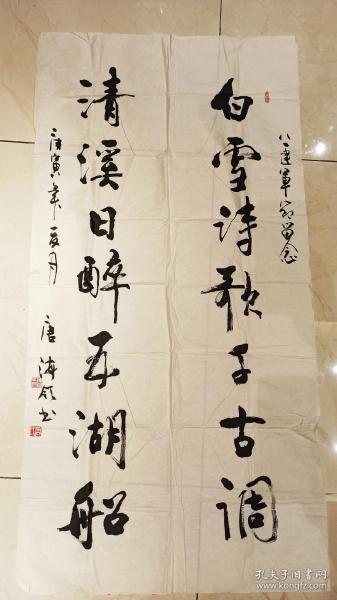 白雪诗歌千古调
八一建軍节留念
清溪日醉五湖船
庚寅年夏月 唐海领书
孔夫子旧书网
www.kongfz.com